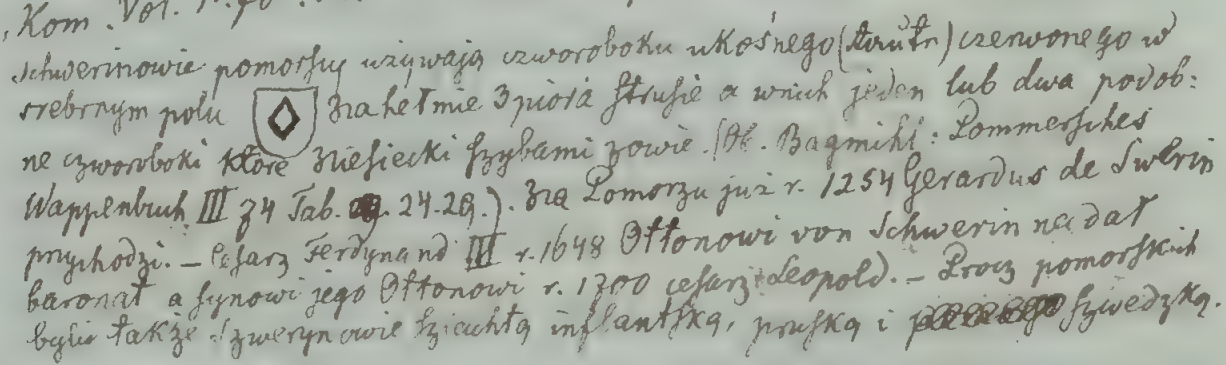 Kom. Vol.
Schwerinowie pomorscy używają czworoboku ukośnego (Raute) czerwonego w
srebrnym polu Na hełmie 3 pióra strusie a w nich jeden lub dwa podob:
ne czworoboki które Niesiecki szybami zowie. (Ob. Bagmihl: Pommersches
Wappenbuch III 74 Tab. 24.29.). Na Pomorzu już r. 1254 Gerardus de Swerin
przychodzi. — Cesarz Ferdynand III r. 1648 Ottonowi von Schwerin nadał
baronat a synowi jego Ottonowi r. 1700 cesarz Leopold. — Procz pomorskich
byli także Szwerynowie szlachtą inflantską, pruską i szwedzką.